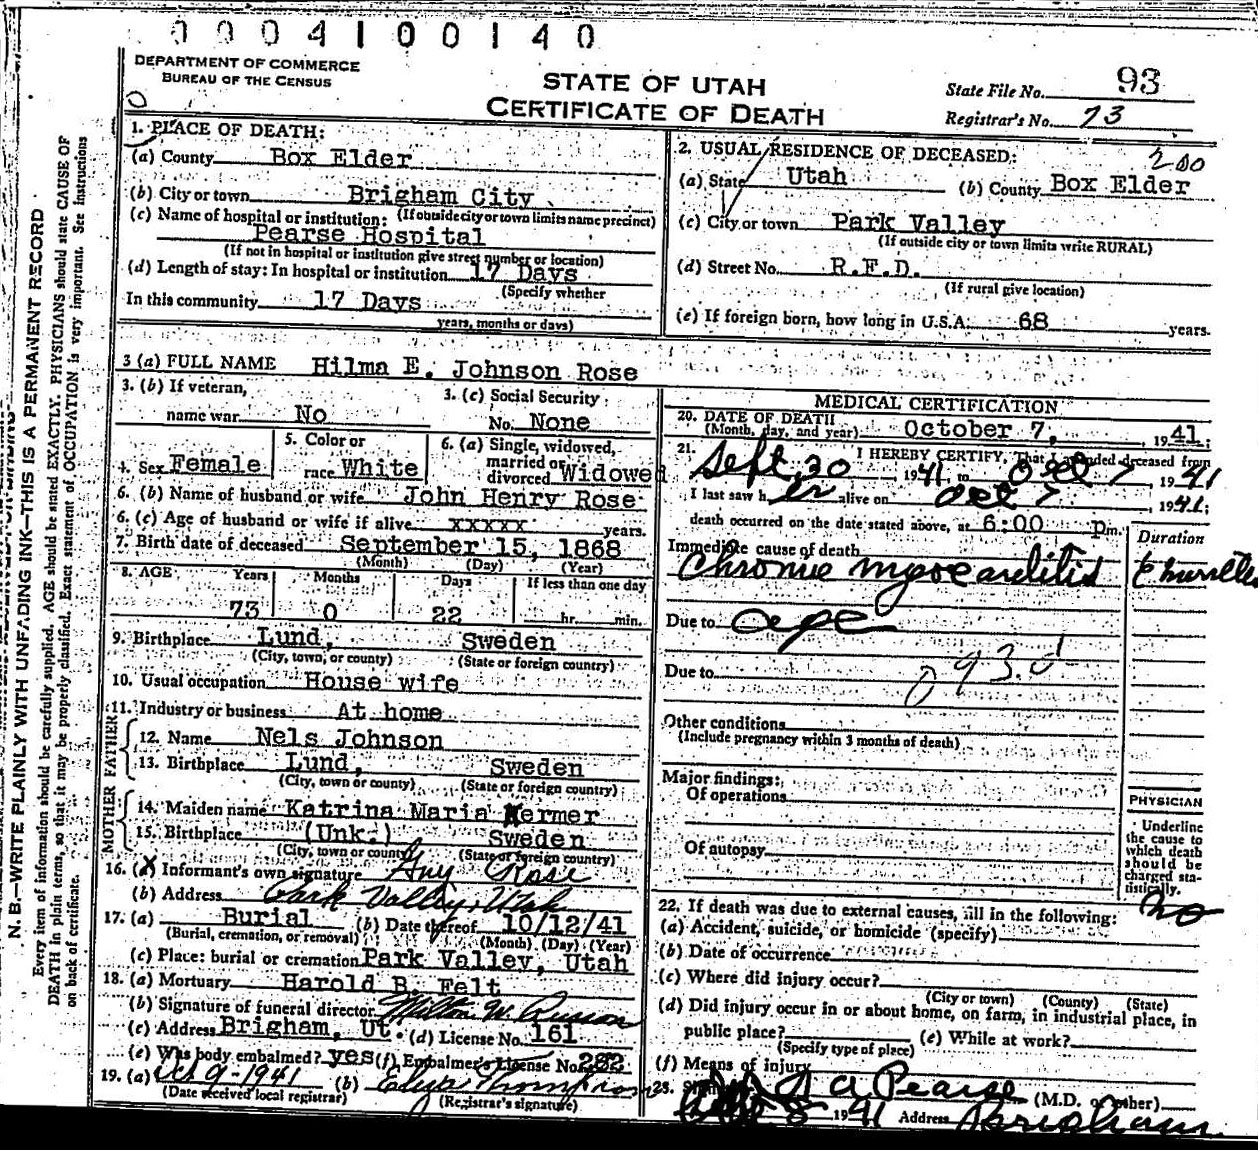 0004100140
DEPARTMENT OF COMMERCE
BUREAU OF THE CENSUS
STATE OF UTAH
CERTIFICATE OF DEATH
State File No. 93
Registrar's No. 73
1. PLACE OF DEATH:
(a) County Box Elder
(b) City or town Brigham City
(c) Name of hospital or institution: (If outside city or town limits name precinct)
Pearse Hospital
(If not in hospital or institution give street number or location)
(d) Length of stay: In hospital or institution 17 Days
(Specify whether
In this community 17 Days
years, months or days)
2. USUAL RESIDENCE OF DECEASED: 200
(a) State Utah (b) County Box Elder
(c) City or town Park Valley
(If outside city or town limits write RURAL)
(d) Street No. R.F.D.
(If rural give location)
(e) If foreign born, how long in U.S.A. 68 years.
3 (a) FULL NAME Hilma E. Johnson Rose
3. (b) If veteran,
name war No
3. (c) Social Security
No. None
4. Sex Female
5. Color or
race White
6. (a) Single, widowed,
married or
divorced Widowed
6. (b) Name of husband or wife John Henry Rose
6. (c) Age of husband or wife if alive xxxxx years.
7. Birth date of deceased September 15, 1868
(Month) (Day) (Year)
8. AGE Years Months Days If less than one day
73 0 22 hr. min.
9. Birthplace Lund, Sweden
(City, town, or county) (State or foreign country)
10. Usual occupation House wife
11. Industry or business At home
FATHER
12. Name Nels Johnson
13. Birthplace Lund, Sweden
(City, town or county) (State or foreign country)
MOTHER
14. Maiden name Katrina Maria Kermer
15. Birthplace (Unk.) Sweden
(City, town or county) (State or foreign country)
16. (a) Informant's own signature Guy Rose
(b) Address Park Valley, Utah
17. (a) Burial (b) Date thereof 10/12/41
(Burial, cremation, or removal) (Month) (Day) (Year)
(c) Place: burial or cremation Park Valley, Utah
18. (a) Mortuary Harold B. Felt
(b) Signature of funeral director Milton W.
(c) Address Brigham, Ut. (d) License No. 161
(e) Was body embalmed? yes (f) Embalmer's License No. 282
19. (a) Oct 9-1941 (b) Thompson
(Date received local registrar) (Registrar's signature)
MEDICAL CERTIFICATION
20. DATE OF DEATH
(Month, day, and year) October 7, 1941;
21. I HEREBY CERTIFY, That I attended deceased from
Sept. 30 1941 to Oct 7 1941
I last saw her alive on Oct 7 1941;
death occurred on the date stated above, at 6:00 pm.
Duration
Immediate cause of death
Chronic myocarditis
Due to age
Due to
Other conditions
(Include pregnancy within 3 months of death)
Major findings:
Of operations
Of autopsy
PHYSICIAN
Underline
the cause to
which death
should be
charged sta-
tistically.
22. If death was due to external causes, fill in the following: no
(a) Accident, suicide, or homicide (specify)
(b) Date of occurrence
(c) Where did injury occur?
(City or town) (County) (State)
(d) Did injury occur in or about home, on farm, in industrial place, in
public place? (e) While at work?
(Specify type of place)
(f) Means of injury
23. Pearse (M.D. or other)
8 1941 Address Brigham
N. B.—WRITE PLAINLY WITH UNFADING INK—THIS IS A PERMANENT RECORD
Every item of information should be carefully supplied. AGE should be stated EXACTLY. PHYSICIANS should state CAUSE OF
DEATH in plain terms, so that it may be properly classified. Exact statement of OCCUPATION is very important. See instructions
on back of certificate.